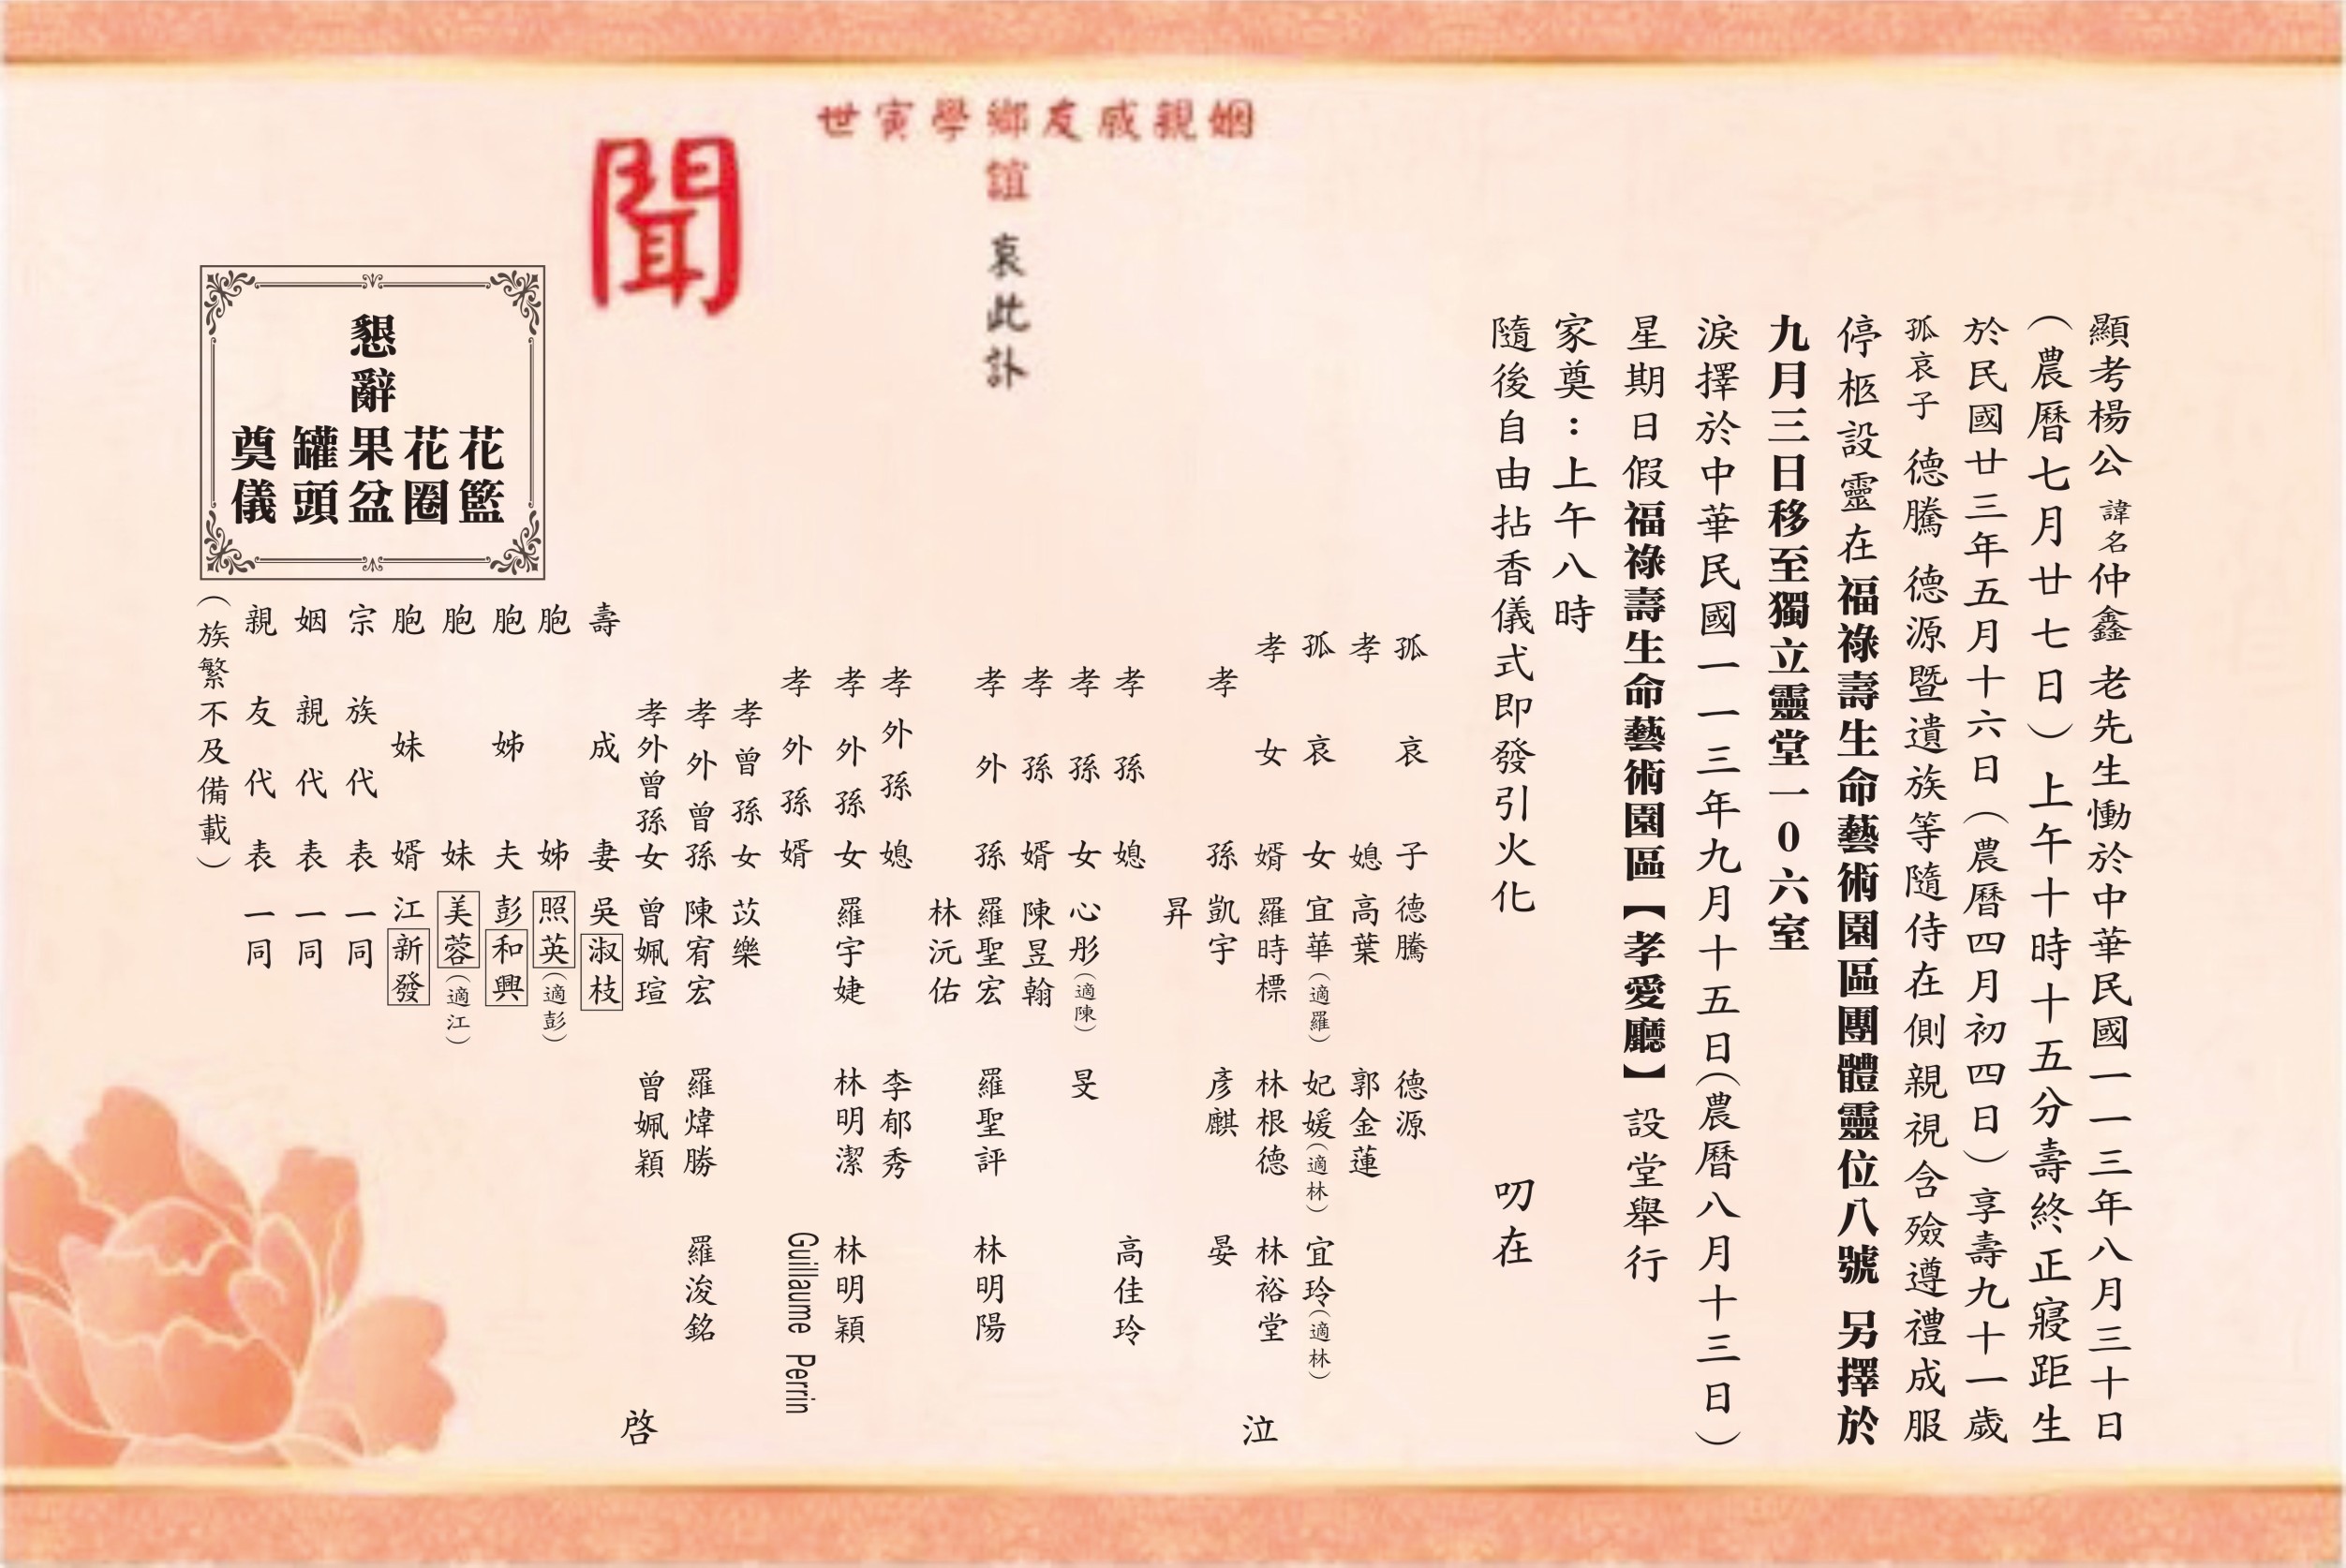 顯考楊公諱名仲鑫 老先生慟於中華民國一一三年八月三十日
（農曆七月廿七日）上午十時十五分壽終正寢距生
於民國廿三年五月十六日（農曆四月初四日）享壽九十一歲
孤哀子 德騰 德源暨遺族等隨侍在側親視含殮遵禮成服
停柩設靈在福祿壽生命藝術園區團體靈位八號 另擇於
九月三日移至獨立靈堂一0六室
淚擇於中華民國一一三年九月十五日（農曆八月十三日）
星期日假福祿壽生命藝術園區【孝愛廳】設堂舉行
家奠：上午八時
隨後自由拈香儀式即發引火化
叨在
姻親戚友鄉學寅世
誼 哀此訃
聞
孤哀子 德騰 德源
孝媳 高葉 郭金蓮
孤哀女 宜華（適羅） 妃媛（適林） 宜玲（適林）
孝女婿 羅時標 林根德 林裕堂
孝孫 凱宇 彥麒 晏
昇
孝孫媳 高佳玲
孝孫女 心彤（適陳） 旻
孝孫婿 陳昱翰
孝外孫 羅聖宏 羅聖評 林明陽
林沅佑
孝外孫媳 李郁秀
孝外孫女 羅宇婕 林明潔 林明穎
孝外孫婿 Guillaume Perrin
孝曾孫女 苡樂
孝外曾孫 陳宥宏 羅煒勝 羅浚銘
孝外曾孫女 曾姵瑄 曾姵穎
泣
壽成妻 吳淑枝
胞姊 照英（適彭）
胞姊夫 彭和興
胞妹 美蓉（適江）
胞妹婿 江新發
宗族代表 一同
姻親代表 一同
親友代表 一同
（族繁不及備載）
啓
懇辭
花籃
花圈
果盆
罐頭
奠儀